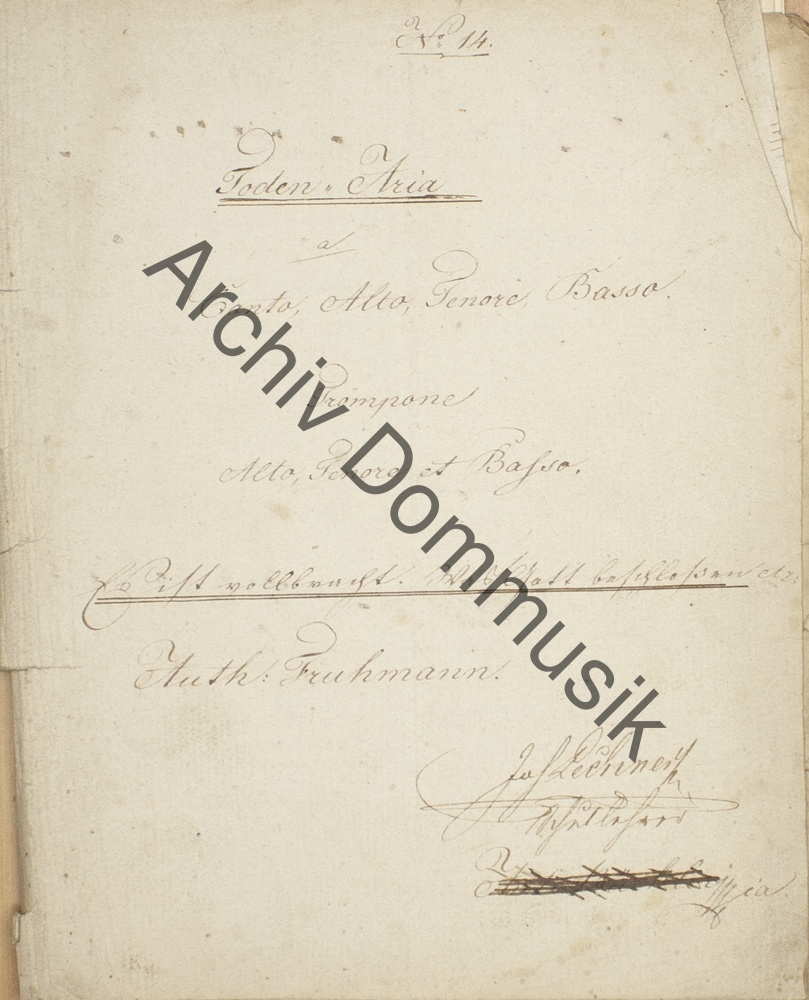 No: 14.
Toden = Aria
a
Canto, Alto, Tenore, Basso.
Trompone
Alto, Tenore et Basso.
Es ist vollbracht. Was Gott beschloßen etc:
Auth: Fruhmann.
Jos Lechner
Schullehrer
Archiv Dommusik